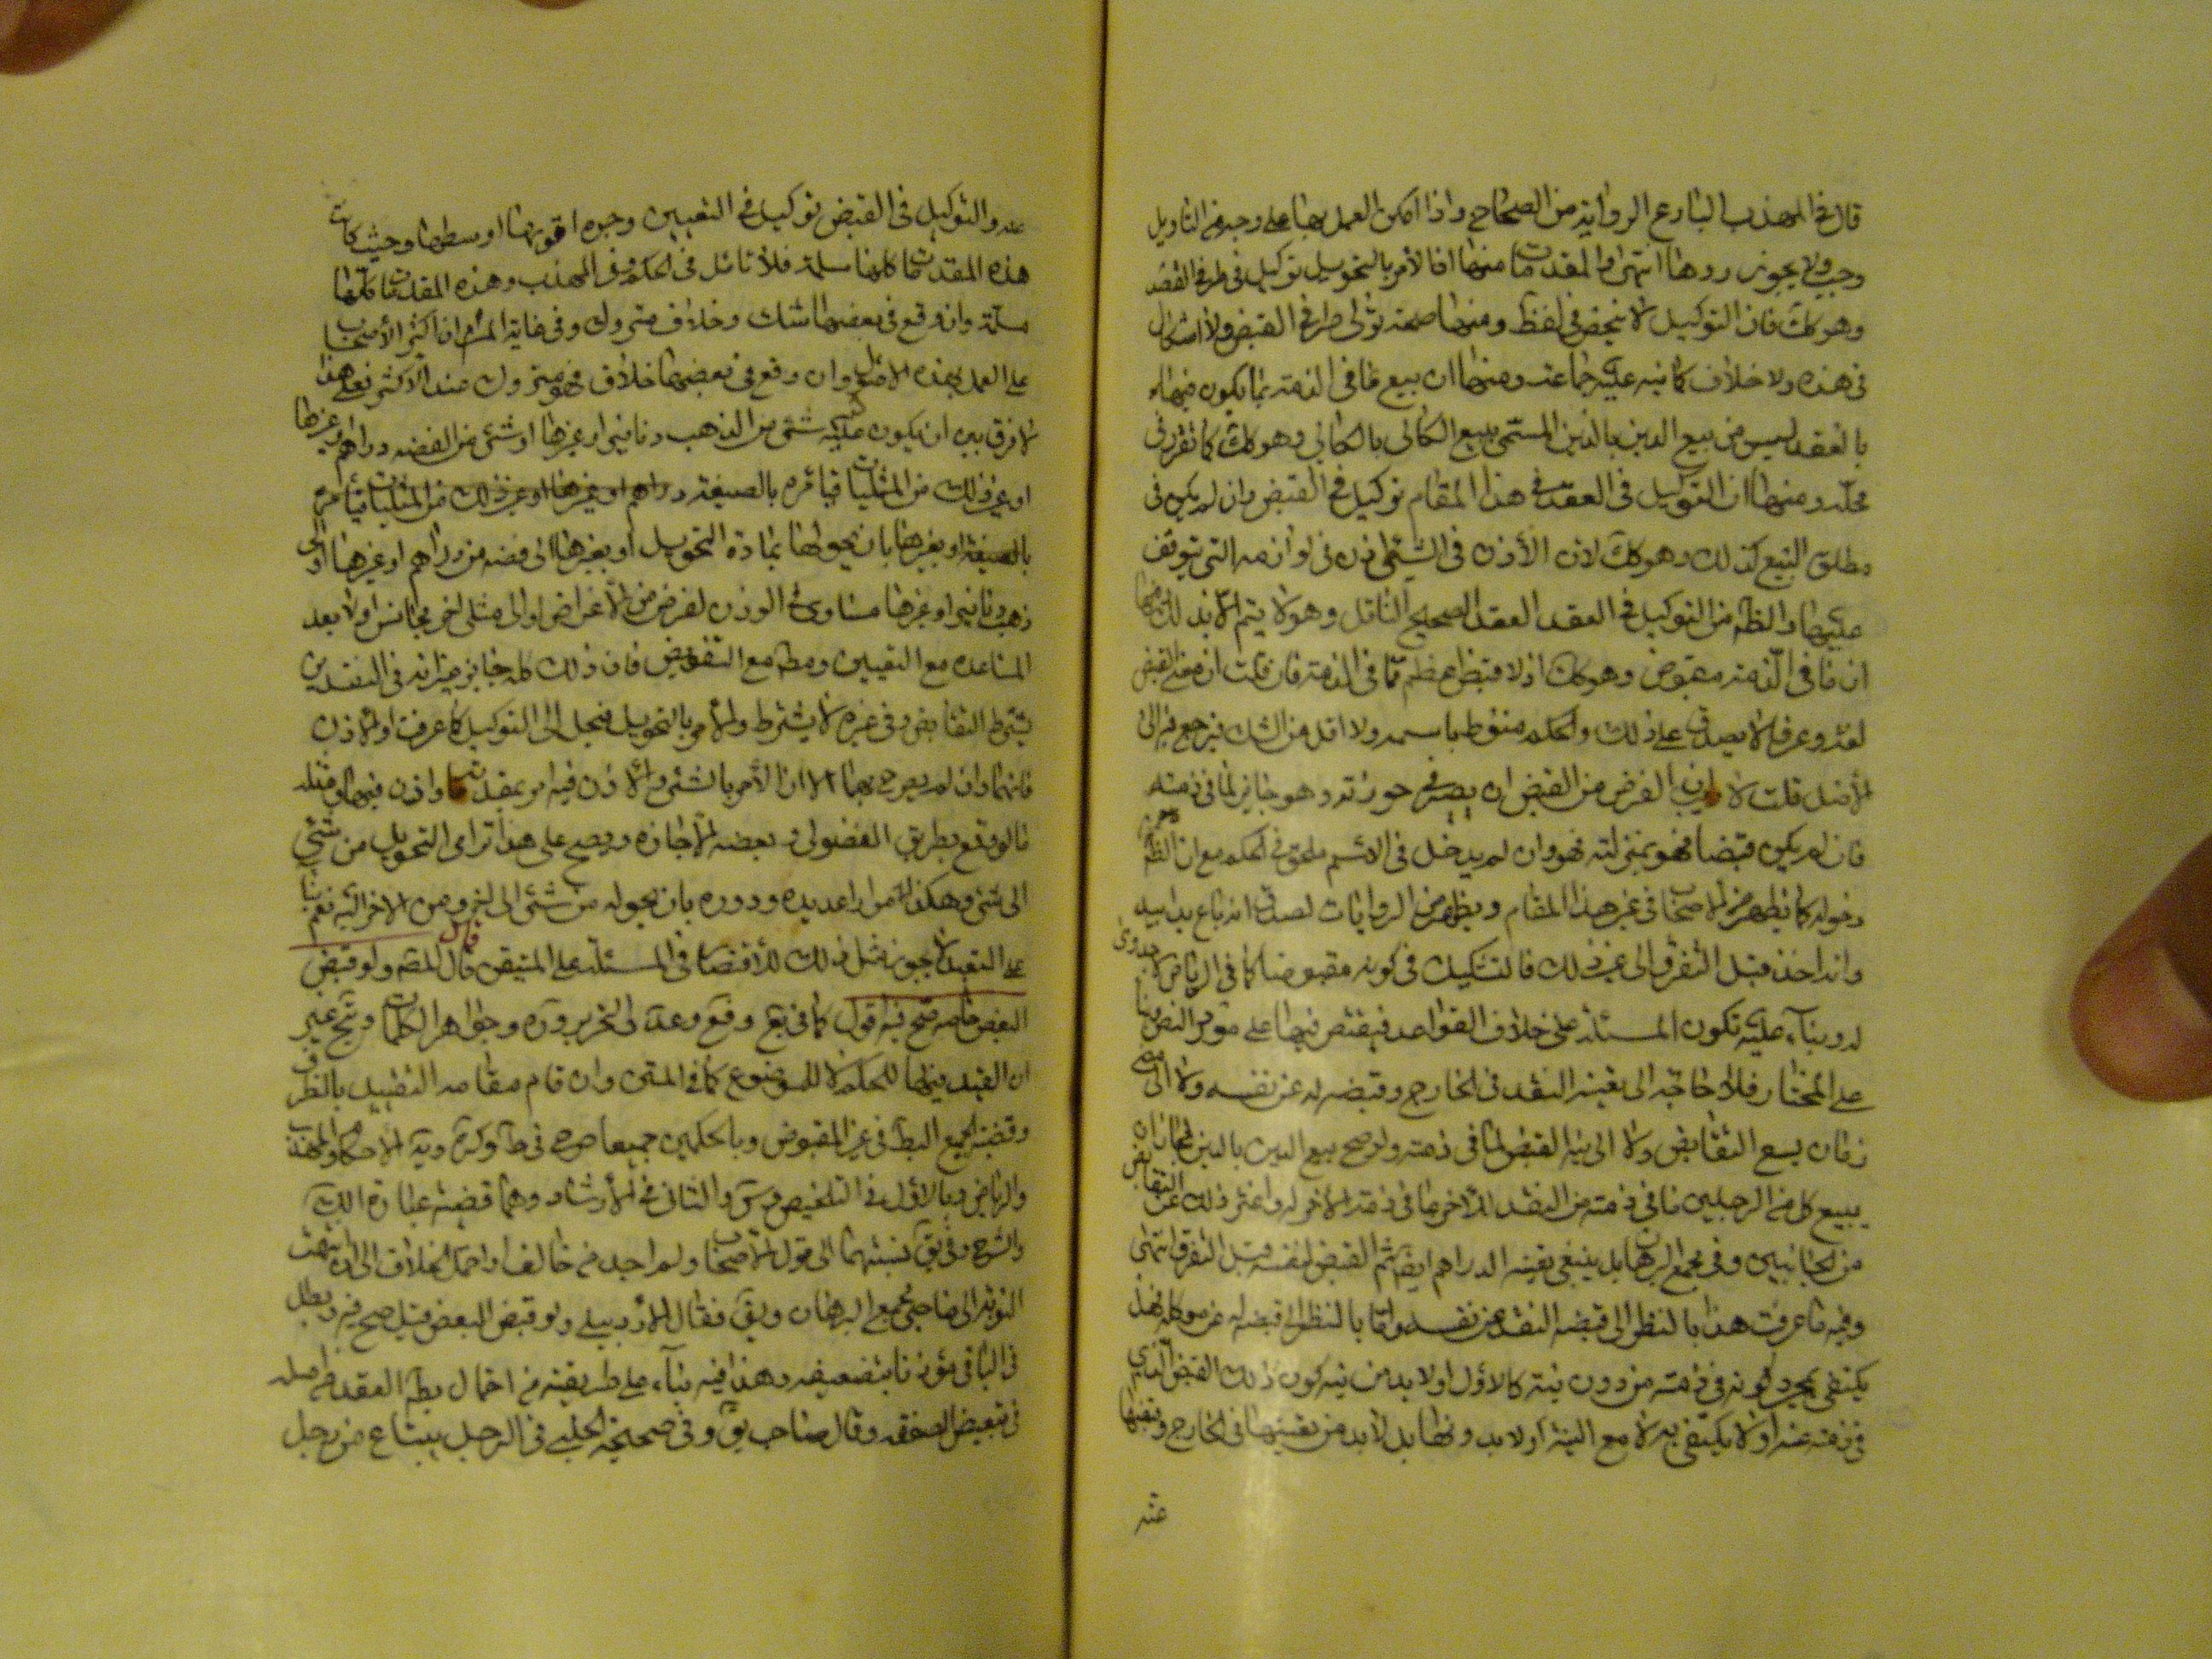 قال في المهذب البارع الرواية من الصحاح واذا امكن العمل بها على وجه من التاويل
وجب ولا يجوز ردها انتهى والمقدمات منها ان الأمر بالتحويل توكيل في طرفي العقد
وهو كك فان التوكيل لا ينحصر في لفظ ومنها صحة تولى طرفي القبض ولا اشكال
في هذه ولا خلاف كما نبه عليه جماعة ومنها ان بيع ما في الذمة بما يكون فيها
بالعقد ليس من بيع الدين بالدين المسمى ببيع الكالى بالكالى وهو كك كما تقرر في
محله ومنها ان التوكيل في العقد في هذا المقام توكيل في القبض وان لم يكن في
مطلق البيع كذلك وهو كك لان الأذن في الشئ اذن في لوازمه التي يتوقف
عليها والظ من التوكيل في العقد العقد الصحيح الناقل وهو لا يتم الا بذلك ومنها
ان ما في الذمة مقبوض وهو كك اذ لا قبض اعظم مما في الذمة فان قلت ان معنى القبض
لغة وعرفا لا يصدق على ذلك والحكم منوط باسمه ولا اقل من الشك فيرجع فيه الى
الأصل قلت لا ريب ان الغرض من القبض ان يصير في حوزته وهو حايز لما في ذمته
فان لم يكن قبضا فهو بمنزلته فهو وان لم يدخل في الاسم ملحق في الحكم مع ان الظ
دخوله كما يظهر من الأصحاب في غير هذا المقام ويظهر من الروايات لصدق انه باع يدا بيد
وانه اخذ قبل التفرق الى غير ذلك فالتشكيك في كونه مقبوضا كما في الرياض لا جدوى
له وبناء عليه تكون المسئلة على خلاف القواعد فيقتصر فيها على مورد النص وبنا
على المختار فلا حاجة الى تعينه النقد في الخارج وقبضه له عن نفسه ولا الى مضي
زمان يسع التقابض ولا الى نية القبض لما في ذمته ولو صح بيع الدين بالدين لجاز ان
يبيع كل من الرجلين ما في ذمته من النقد للأخر بما في ذمة الأخر له واغنى ذلك عن التقابض
من الجانبين وفي مجمع البرهان بل ينبغي تعينه الدراهم ايضا ثم القبض لنفسه قبل التفرق انتهى
وفيه ما عرفت هذا بالنظر الى قبضه النقد عن نفسه واما بالنظر الى قبضه له عن موكله فهل
يكتفى بمجرد كونه في ذمته من دون نية كالاول او لا بد من نية كون ذلك القبض الذي
في ذمته عنه او لا يكتفى به الا مع النية او لا بد ولها بل لا بد من تعينها في الخارج وقبضها
عنه
عنه والتوكيل في القبض توكيل في التعيين وجوه اقويها اوسطها وحيث كانت
هذه المقدمات كلها مسلمة فلا تأمل في الحكم وفي المهذب وهذه المقدمات كلها
مسلمة وان وقع في بعضها شك وخلاف متروك وفي غاية المرام ان اكثر الأصحاب
على العمل بهذه الاصول وان وقع في بعضها خلاف فهو متروك عند الاكثر فعلى هذا
لا فرق بين ان يكون عليه شئ من الذهب دنانير او غيرها او شئ من الفضه دراهم وغيرها
او غير ذلك من المثليات فيأمره بالصيغة دراهم او غيرها او غير ذلك من المثليات فيأمره
بالصيغة او بغيرها بان يحولها بمادة التحويل او بغيرها الى فضه من دراهم او غيرها او الى
ذهب دنانير او غيرها مساوى في الوزن لغرض من الأغراض او الى مثلى اخر مجانس اولا بعد
المساعدة مع التعيين ومط مع التفويض فان ذلك كله جايز غير انه في النقدين
يشترط التقابض وفي غيره لا يشترط والأمر بالتحويل ينحل الى التوكيل كما عرفت او الاذن
فانهما وان لم يصرح بهما الا ان الأمر بالشئ والأذن فيه امر بمقدماته واذن فيها ومثله
ما لو وقع بطريق الفضولى وبعضه الأجازه ويصح على هذا ترامى التحويل من شئ
الى شئ وهكذا مرارا عديده ودوره بان يحوله من شئ الى اخر ومن الاخر اليه نعم بنا
على التعبد لا يجوز مثل ذلك للأقتصار في المسئلة على المتيقن قال المصه ولو قبض
البعض خاصه صح فيه اقول كما في يع وقع وعد والتحرير وره وجواهر الكلمات وتج غير
ان القيد فيها للحكم لا للموضوع كما في المتن وان قام مقامه التقييد بالظرف
وقضية الجميع البط في غير المقبوض وبالحكمين جميعا صرح في ط وكره وية الاحكام والمهذب
والرياض وبالاول في التلخيص وس والثانى في الأرشاد وهما قضية عبارة الك
والشرح وفي يق نسبتهما الى قول الأصحاب ولم اجد من خالف واحتمل الخلاف الى ان انتهت
النوبة الى صاحبي مجمع البرهان ويق فقال الأردبيلى ولو قبض البعض قيل صح فيه وبطل
في الباقي موذنا بتضعيفه وهذا فيه بناء على طريقته من احتمال بط العقد من اصله
في تبعيض الصفقه وقال صاحب يق وفي صحيحة الحلبى في الرجل يبتاع من رجل